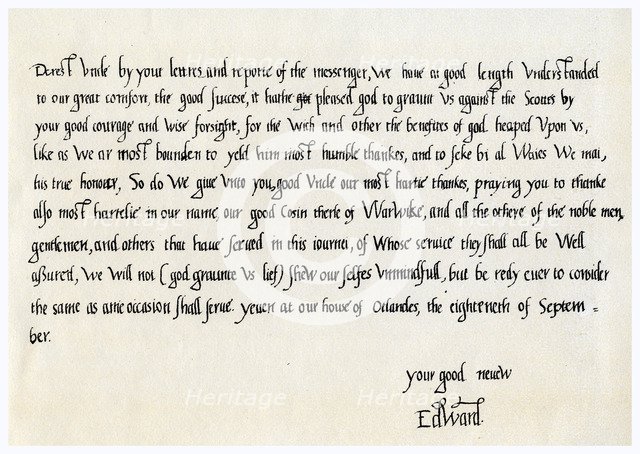 Derest Vncle by your lettres and reporte of the messenger, We haue at good length Vnderstanded
to our great comfort, the good succese, it hathe pleased god to graunt Vs against the Scotts by
your good courage and Wise forsight, for the Wich and other the benefites of god heaped Vpon Vs,
like as We ar most bounden to yeld him most humble thankes, and to seke bi al Waies We mai,
his true honour, So do We giue Vnto you, good Vncle our most hartie thankes, praying you to thanke
also most hartelie in our name our good Cosin therle of WarWike, and all the othere of the noble men,
gentlemen, and others that haue serued in this iournei, of Whose seruice they shall all be Well
assured, We will not (god graunte Vs lief) shew our selfes Vnmindfull, but be redy euer to consider
the same as anie occasion shall serue. yeuen at our house of Otlandes, the eighteneth of Septem=
ber.
your good neuew
EdWard.
Heritage
Heritage
Heritage
Heritage